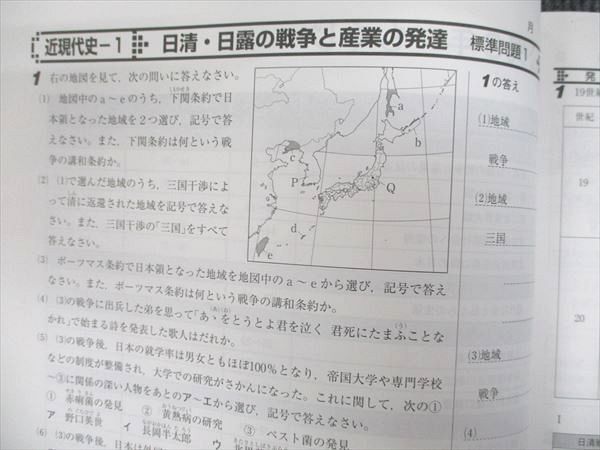 月
近現代史-1 日清・日露の戦争と産業の発達 標準問題1
1 右の地図を見て，次の問いに答えなさい。
(1) 地図中のa～eのうち，下関条約で日
本領となった地域を2つ選び，記号で答
えなさい。また，下関条約は何という戦
争の講和条約か。
(2) (1)で選んだ地域のうち，三国干渉によ
って清に返還された地域を記号で答えな
さい。また，三国干渉の「三国」をすべて
答えなさい。
a
b
c
P
Q
d
e
(3) ポーツマス条約で日本領となった地域を地図中のa～eから選び，記号で答え
なさい。また，ポーツマス条約は何という戦争の講和条約か。
(4) (3)の戦争に出兵した弟を思って「あゝをとうとよ君を泣く 君死にたまふことな
かれ」で始まる詩を発表した歌人はだれか。
(5) (3)の戦争後，日本の就学率は男女ともほぼ100％となり，帝国大学や専門学校
などの制度が整備され，大学での研究がさかんになった。これに関して，次の①
～③に関係の深い人物をあとのア～エから選び，記号で答えなさい。
① 赤痢菌の発見 ② 黄熱病の研究 ③ ペスト菌の発見
ア 野口英世 イ 長岡半太郎 ウ
(6) (3)の戦争後，日本は
1の答え
(1)地域
戦争
(2)地域
三国
(3)地域
戦争
(4)
発
1 19世紀
世紀
19
20
I
日清戦